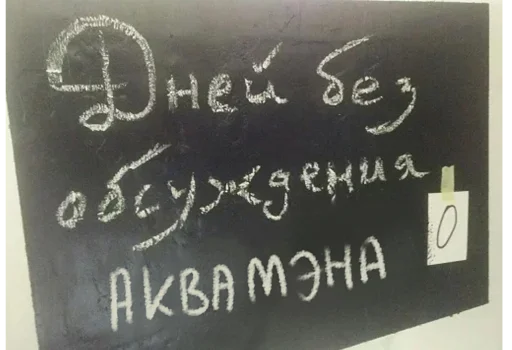 Дней без
обсуждения
0
АКВАМЭНА